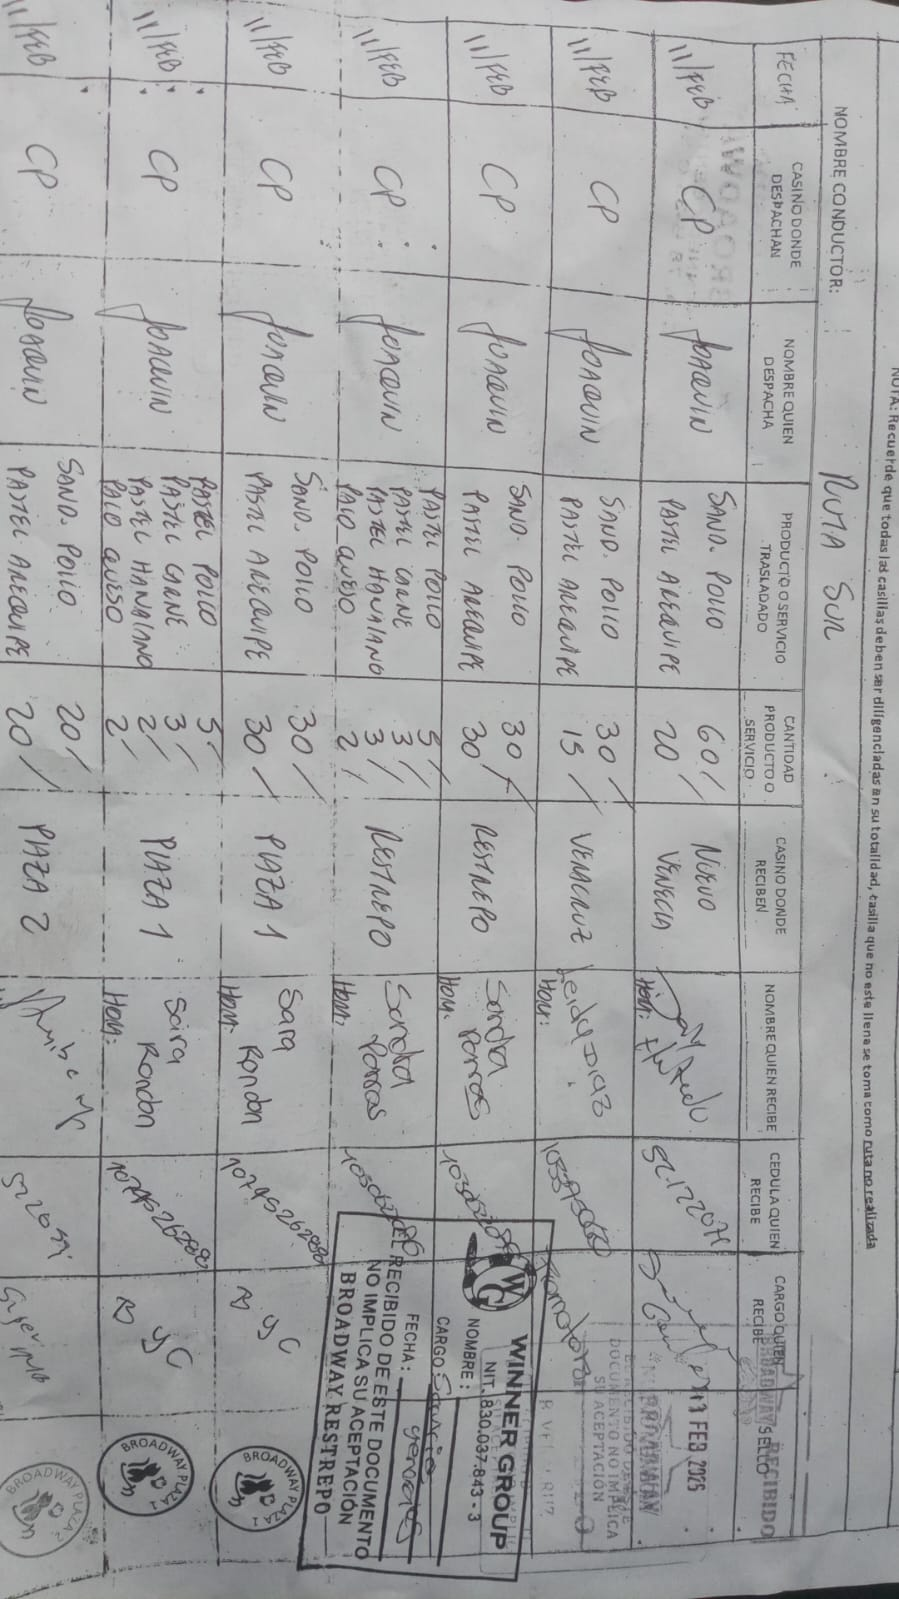 NOTA: Recuerde que todas las casillas deben ser diligenciadas en su totalidad, casilla que no este llena se toma como ruta no realizada
NOMBRE CONDUCTOR: RUTA SUR
FECHA
CASINO DONDE DESPACHAN
NOMBRE QUIEN DESPACHA
PRODUCTO O SERVICIO TRASLADADO
CANTIDAD PRODUCTO O SERVICIO
CASINO DONDE RECIBEN
NOMBRE QUIEN RECIBE
CEDULA QUIEN RECIBE
CARGO QUIEN RECIBE
SELLO
RECIBIDO
11/FEB CP JOAQUIN SAND. POLLO 60 NUEVO
PASTEL AREQUIPE 20 VENECIA HORA:
11 FEB 2025
11/FEB CP JOAQUIN SAND. POLLO 30 VERACRUZ Leidy Diaz
PASTEL AREQUIPE 15 HORA:
DOCUMENTO NO IMPLICA
SU ACEPTACIÓN
11/FEB CP JOAQUIN SAND. POLLO 30 RESTREPO Sandra Porras
PASTEL AREQUIPE 30 HORA:
11/FEB CP JOAQUIN PASTEL POLLO 5 RESTREPO Sandra Porras
PASTEL CARNE 3
PASTEL HAWAIANO 3
PALO QUESO 2 HORA:
WINNER GROUP
NIT. 830.037.843 - 3
NOMBRE:
CARGO Servicio
generales
FECHA:
EL RECIBIDO DE ESTE DOCUMENTO
NO IMPLICA SU ACEPTACIÓN
BROADWAY RESTREPO
11/FEB CP JOAQUIN SAND. POLLO 30 PLAZA 1 Sara Rondon
PASTEL AREQUIPE 30 HORA:
BROADWAY PLAZA 1
11/FEB CP JOAQUIN PASTEL POLLO 5 PLAZA 1 Saira Rondon
PASTEL CARNE 3
PASTEL HAWAIANO 2
PALO QUESO 2 HORA:
BROADWAY PLAZA 1
11/FEB CP JOAQUIN SAND. POLLO 20 PLAZA 2
PASTEL AREQUIPE 20
BROADWAY PLAZA 2